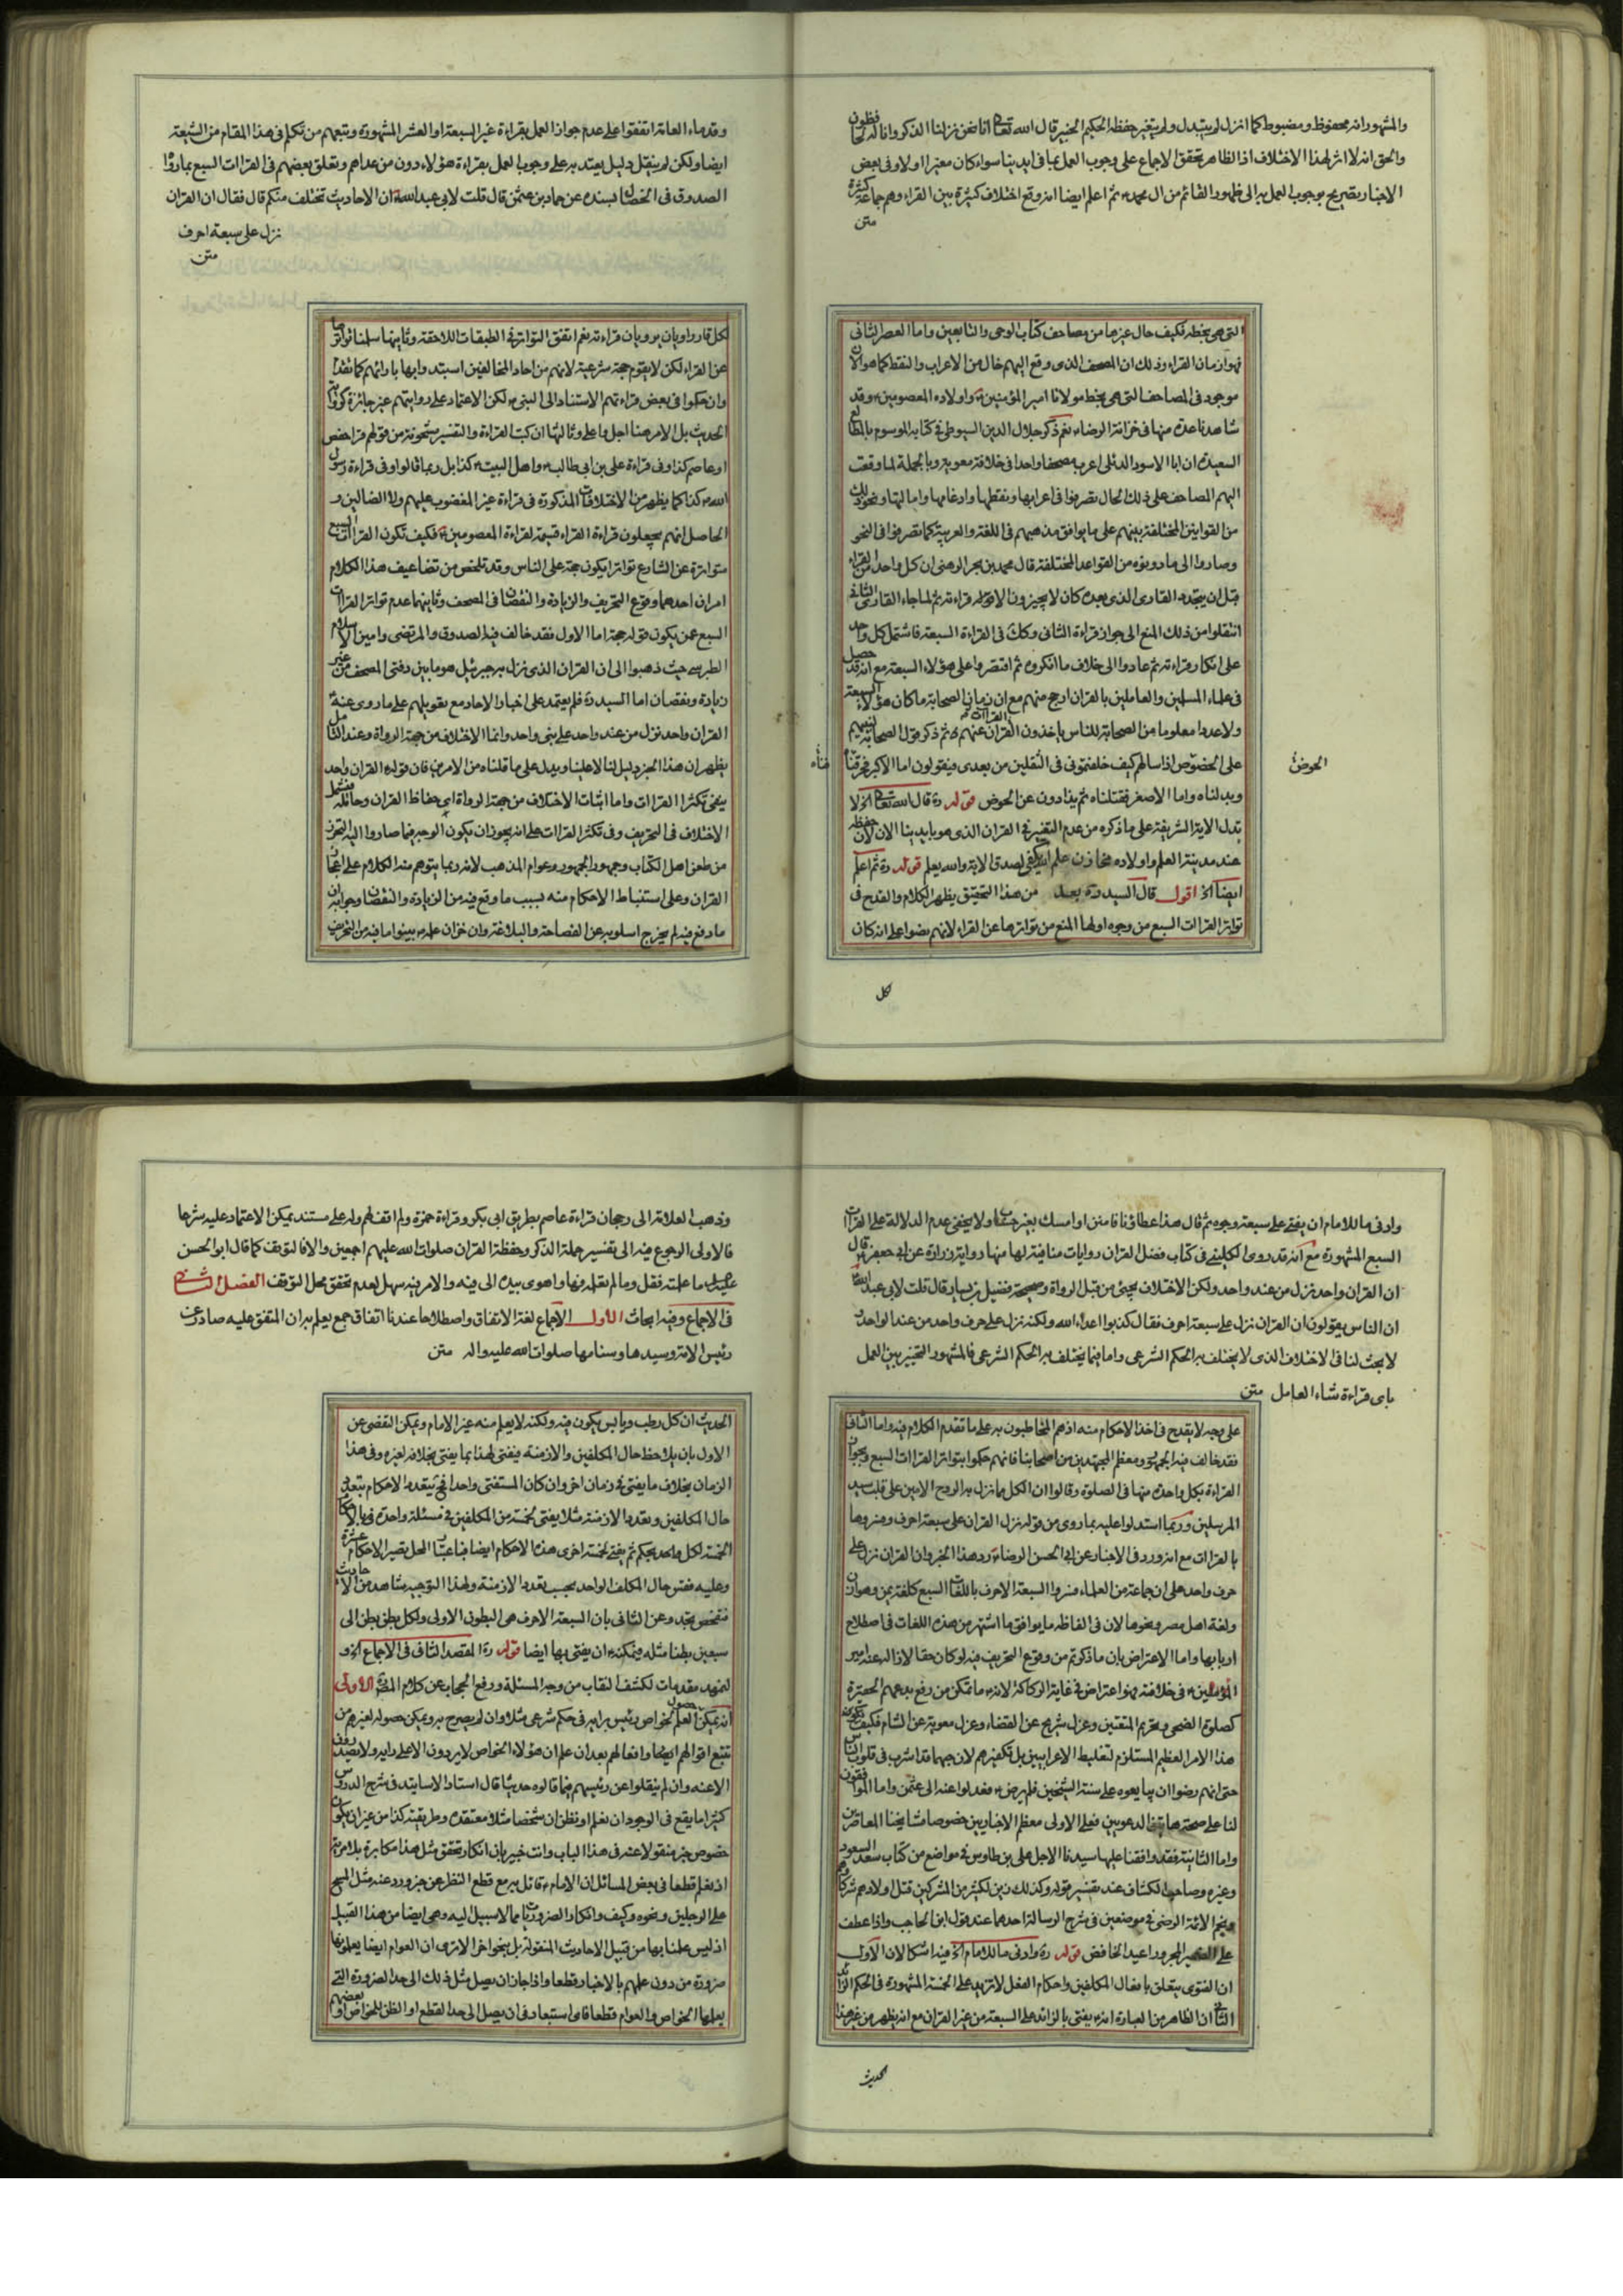 والمشهور انه محفوظ ومضبوط كما انزل لم يتبدل ولم يتغير حفظه الحكيم الخبير قال الله تعالى انا نحن نزلنا الذكر وانا له لحافظون
والحق انه لا اثر لهذا الاختلاف اذ الظاهر تحقق الاجماع على وجوب العمل بما في ايدينا سواء كان مغيرا اولا وفي بعض
الاخبار تصريح بوجوب العمل به الى ظهور القائم من ال محمد ثم اعلم ايضا انه وقع اختلاف كثيرة بين القراء وهم جماعة كثيرة
متن
التي هي بخطه فكيف حال غيرها من مصاحف كتاب الوحي والتابعين واما العصر الثاني
فهو زمان القراء وذلك ان المصحف الذي وقع اليهم خال من الاعراب والنقط كما هو الان
موجود في المصاحف التي هي بخط مولانا امير المؤمنين واولاده المعصومين وقد
شاهدنا عدة منها في خزانة الرضا نعم ذكر جلال الدين السيوطي في كتابه الموسوم بالمطالع
السعيدة ان ابا الاسود الدئلي اعرب مصحفا واحدا في خلافة معوية وبالجملة لما وقعت
اليهم المصاحف على ذلك الحال تصرفوا في اعرابها ونقطها وادغامها وامالتها ونحو ذلك
من القوانين المختلفة بينهم على ما يوافق مذهبهم في اللغة والعربية كما تصرفوا في النحو
وصاروا الى ما دونوه من القواعد المختلفة قال محمد بن بحر الرهني ان كل واحد من القراء
قبل ان يتجدد القارى الذي بعده كان لا يجيزون الا قراءته ثم لما جاء القارى الثاني
انتقلوا من ذلك المنع الى جواز قراءة الثاني وكك في القراءة السبعة فاشتمل كل واحد
على انكار قراءته ثم عادوا الى خلاف ما انكروه ثم اقتصروا على هؤلاء السبعة مع انه قد حصل
في علماء المسلمين والعاملين بالقران ارجح منهم مع ان زمان الصحابة ما كان هؤلاء السبعة
ولا عددا معلوما من الصحابة للناس ياخذون القراات عنهم ثم ذكر قول الصحابة لنبيهم
على الحوض اذا سالهم كيف خلفتموني في الثقلين من بعدي فيقولون اما الاكبر فحرقناه
الحوض
وبدلناه واما الاصغر فقتلناه ثم يذادون عن الحوض قوله ره قال الله تعالى الخ لا
تدل الاية الشريفة على ما ذكره من عدم التغير في القران الذي هو بايدينا الان لان حفظه
عند مدينة العلم واولاده مخازن علم الله يكفي لصدق الاية والله يعلم قوله ره ثم اعلم
ايضا الخ اقول قال السيد ره بعد من هذا التحقيق يظهر الكلام والقدح في
تواتر القراات السبع من وجوه اولها المنع من تواترها عن القراء لانهم نصوا على انه كان
لكل
وقدماء العامة اتفقوا على عدم جواز العمل بقراءة غير السبعة او العشر المشهورة وتبعهم من تكلم في هذا المقام من الشيعة
ايضا ولكن لم ينقل دليل يعتد به على وجوب العمل بقراءة هؤلاء دون من عداهم وتعلق بعضهم في القراات السبع بما روا
الصدوق في الخصال بسنده عن حماد بن عثمن قال قلت لابي عبد الله ان الاحاديث تختلف منكم قال فقال ان القران
نزل على سبعة احرف
متن
لكل قار راويان يرويان قراءته نعم اتفق التواتر في الطبقات اللاحقة وثانيها سلمنا تواترها
عن القراء لكن لا يقوم حجة شرعية لانهم من احاد المخالفين استبدوا بها بارائهم كما تقدم
وان حكوا في بعض قراءتهم الاستناد الى النبي لكن الاعتماد على روايتهم غير جائزة كرواية
الحديث بل الامر هنا اجل واعلى وثالثها ان كتب القراءة والتفسير مشحونة من قولهم قرا حفص
او عاصم كذا وفي قراءة علي بن ابي طالب واهل البيت كذا بل ربما قالوا وفي قراءة رسول
الله كذا كما يظهر من الاختلافات المذكورة في قراءة غير المغضوب عليهم ولا الضالين و
الحاصل انهم يجعلون قراءة القراء قسيمة لقراءة المعصومين فكيف تكون القراات السبع
متواترة عن الشارع تواترا يكون حجة على الناس وقد تلخص من تضاعيف هذا الكلام
امران احدهما وقوع التحريف والزيادة والنقصان في المصحف وثانيهما عدم تواتر القراات
السبع عمن يكون قوله حجة اما الاول فقد خالف فيه الصدوق والمرتضى وامين الاسلام
الطبرسي حيث ذهبوا الى ان القران الذي نزل به جبرئيل هو ما بين دفتي المصحف من غير
زيادة ونقصان اما السيد ره فلم يعتمد على اخبار الاحاد مع تعويلهم على ما روى عنه
القران واحد نزل من عند واحد على نبي واحد وانما الاختلاف من جهة الرواة وعند التامل
يظهر ان هذا الخبر دليل لنا لا علينا ويدل على ما قلناه من الامرين فان قوله القران واحد
ينفي تكثر القراات واما اثبات الاختلاف من جهة الرواة اي حفاظ القران وحامليه فيشمل
الاختلاف في التحريف وفي تكثر القراات على انه يجوز ان يكون الوجه فيما صاروا اليه التحرز
من طعن اهل الكتاب وجمهور الجمهور وعوام المذهب لانه ربما يتوهم منه الكلام على اعجاز
القران وعلى استنباط الاحكام منه بسبب ما وقع فيه من الزيادة والنقصان وجوابه ان
ما وقع فيه لم يخرج اسلوبه عن الفصاحة والبلاغة وان خزان علمه بينوا ما فيه من التحريف
وادنى ما للامام ان يفتي على سبعة وجوه ثم قال هذا عطاؤنا فامنن او امسك بغير حساب ولا يخفى عدم الدلالة على القراات
السبع المشهورة مع انه قد روى الكليني في كتاب فضل القران روايات منافية لها منها رواية زرارة عن ابي جعفر قال
ان القران واحد نزل من عند واحد ولكن الاختلاف يجيئ من قبل الرواة وصحيحة فضيل بن يسار قال قلت لابي عبد الله
ان الناس يقولون ان القران نزل على سبعة احرف فقال كذبوا اعداء الله ولكنه نزل على حرف واحد من عند الواحد
لا بحث لنا في الاختلاف الذي لا يختلف به الحكم الشرعي واما فيما يختلف به الحكم الشرعي فالمشهور التخيير بين العمل
باي قراءة شاء العامل متن
على وجه لا يقدح في اخذ الاحكام منه اذ هم المخاطبون به على ما تقدم الكلام فيه واما الثاني
فقد خالف فيه الجمهور ومعظم المجتهدين من اصحابنا فانهم حكموا بتواتر القراات السبع وبجواز
القراءة بكل واحدة منها في الصلوة وقالوا ان الكل مما نزل به الروح الامين على قلب سيد
المرسلين وربما استدلوا عليه بما روي من قوله نزل القران على سبعة احرف وفسروها
بالقراات مع انه ورد في الاخبار عن ابي الحسن الرضا رد هذا الخبر وان القران نزل على
حرف واحد على ان جماعة من العلماء فسروا السبعة الاحرف باللغات السبع كلغة يمن وهوازن
ولغة اهل مصر ونحوها لان في الفاظه ما يوافق ما اشتهر من هذه اللغات في اصطلاح
اربابها واما الاعتراض بان ما ذكرتم من وقوع التحريف فيه لو كان حقا لازاله عنه امير
المؤمنين في خلافته فهو اعتراض في غاية الركاكة لانه ما تمكن من رفع بدعهم الحقيرة
كصلوة الضحى وتحريم المتعتين وعزل شريح عن القضاء وعزل معوية عن الشام فكيف
هذا الامر العظيم المستلزم لتغليط الاعرابيين بل تكفيرهم لان حبهما قد اشرب في قلوب الناس
حتى انهم رضوا ان يبايعوه على سنة الشيخين فلم يرض فعدلوا عنه الى عثمن واما الموافقون
لنا على صحة هاتين الدعويين فعلى الاولى معظم الاخباريين خصوصا مشايخنا المعاصرين
واما الثانية فقد وافقنا عليها سيدنا الاجل علي بن طاوس في مواضع من كتاب سعد السعود
وغيره وصاحب الكشاف عند تفسير قوله وكذلك زين لكثير من المشركين قتل اولادهم شركاؤهم
ونجم الائمة الرضي في موضعين في شرح الرسالة احدهما عند قول ابن الحاجب واذا عطف
على الضمير المجرور اعيد الخافض قوله ره وادنى ما للامام الخ فيه اشكالان الاول
ان الفتوى يتعلق بافعال المكلفين واحكام الفعل لا تزيد على الخمسة المشهورة فما الحكم الزائد
الثاني ان الظاهر من العبارة انه يفتى بالزائد على السبعة من غير القران مع انه يظهر من غير هذا
الحديث
وذهب العلامة الى رجحان قراءة عاصم بطريق ابي بكر وقراءة حمزة ولم اقف له ولهم على مستند يمكن الاعتماد عليه شرعا
فالاولى الرجوع فيه الى تفسير حملة الذكر وحفظة القران صلوات الله عليهم اجمعين والا فالتوقف كما قال ابو الحسن
عليه السلام ما علمته فقل وما لم تعلمه فها واهوى بيده الى فيه والامر فيه سهل لعدم تحقق محل التوقف الفصل الثاني
في الاجماع وفيه ابحاث الاول الاجماع لغة الاتفاق واصطلاحا عندنا اتفاق جمع يعلم به ان المتفق عليه صادر عن
رئيس الامة وسيدها وسنامها صلوات الله عليه واله متن
الحديث ان كل رطب ويابس يكون فيه ولكنه لا يعلم منه غير الامام ويمكن التفصي عن
الاول بان يلاحظ حال المكلفين والازمنة فيفتى لهذا بما يفتى بخلافه لغيره وفي هذا
الزمان بخلاف ما يفتى في زمان اخر وان كان المستفتي واحدا فح يتعدد الاحكام بتعدد
حال المكلفين وتعدد الازمنة مثلا يفتى لخمسة من المكلفين في مسئلة واحدة
الخمسة لكل واحد بحكم ثم يفتى لخمسة اخرى هذه الاحكام ايضا فباعتبار المحل يصير الاحكام عشرة
وعليه فقس حال المكلف الواحد بحسب تعدد الازمنة ولهذا التوجيه شاهد من الاحاديث
فتفحص تجد وعن الثاني بان السبعة الاحرف هي البطون الاولى ولكل بطن بطن الى
سبعين بطنا مثله فيمكنه ان يفتى بها ايضا قوله ره المقصد الثاني في الاجماع الخ و
لنمهد مقدمات لكشف النقاب من وجه المسئلة ورفع الحجاب عن كلام المص الاولى
انه يمكن حصول العلم لخواص رئيس برايه في حكم شرعي مثلا وان لم يصرح به ويمكن حصوله لغيرهم من
تتبع اقوالهم ايضا وافعالهم بعد ان علم ان هؤلاء الخواص لا يردون الا على رايه ولا يصدرون
الا عنه وان لم ينقلوا عن رئيسهم فيما قالوه حديثا قال استاد الاساتيد في شرح الدروس
كثيرا ما يقع في الوجود ان نعلم او نظن ان شخصا مثلا معتقده وطريقته كذا من غير ان يكون
خصوص خبر منقولا عنه في هذا الباب وانت خبير بان انكار تحقق مثل هذا مكابرة بلا مرية
اذ نعلم قطعا في بعض المسائل ان الامام قائل به مع قطع النظر عن خبر ورد عنه مثل المسح
على الرجلين ونحوه وكيف وانكار الضروريات مما لا سبيل اليه وهي ايضا من هذا القبيل
اذ ليس علمنا بها من قبيل الاحاديث المنقولة بل بنحو اخر الا ترى ان العوام ايضا يعلمونها
ضرورة من دون علمهم بالاخبار قطعا واذا جاز ان يصل مثل ذلك الى حد الضرورة التي
يعلمها الخواص والعوام قطعا فاي استبعاد في ان يصل الى حد القطع او الظن للخواص او بعضهم